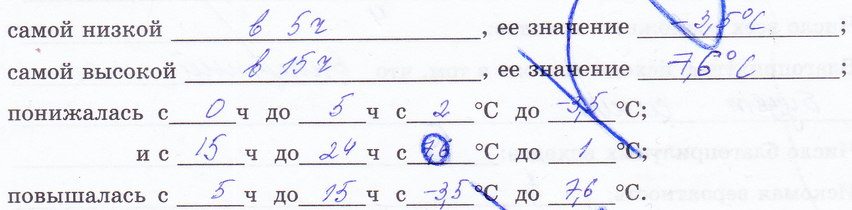 самой низкой в 5ч, ее значение -3,5°C;
самой высокой в 15ч, ее значение 7,6°C;
понижалась с 0 ч до 5 ч с 2 °C до -3,5 °C;
и с 15 ч до 24 ч с 7,6 °C до 1 °C;
повышалась с 5 ч до 15 ч с -3,5 °C до 7,6 °C.